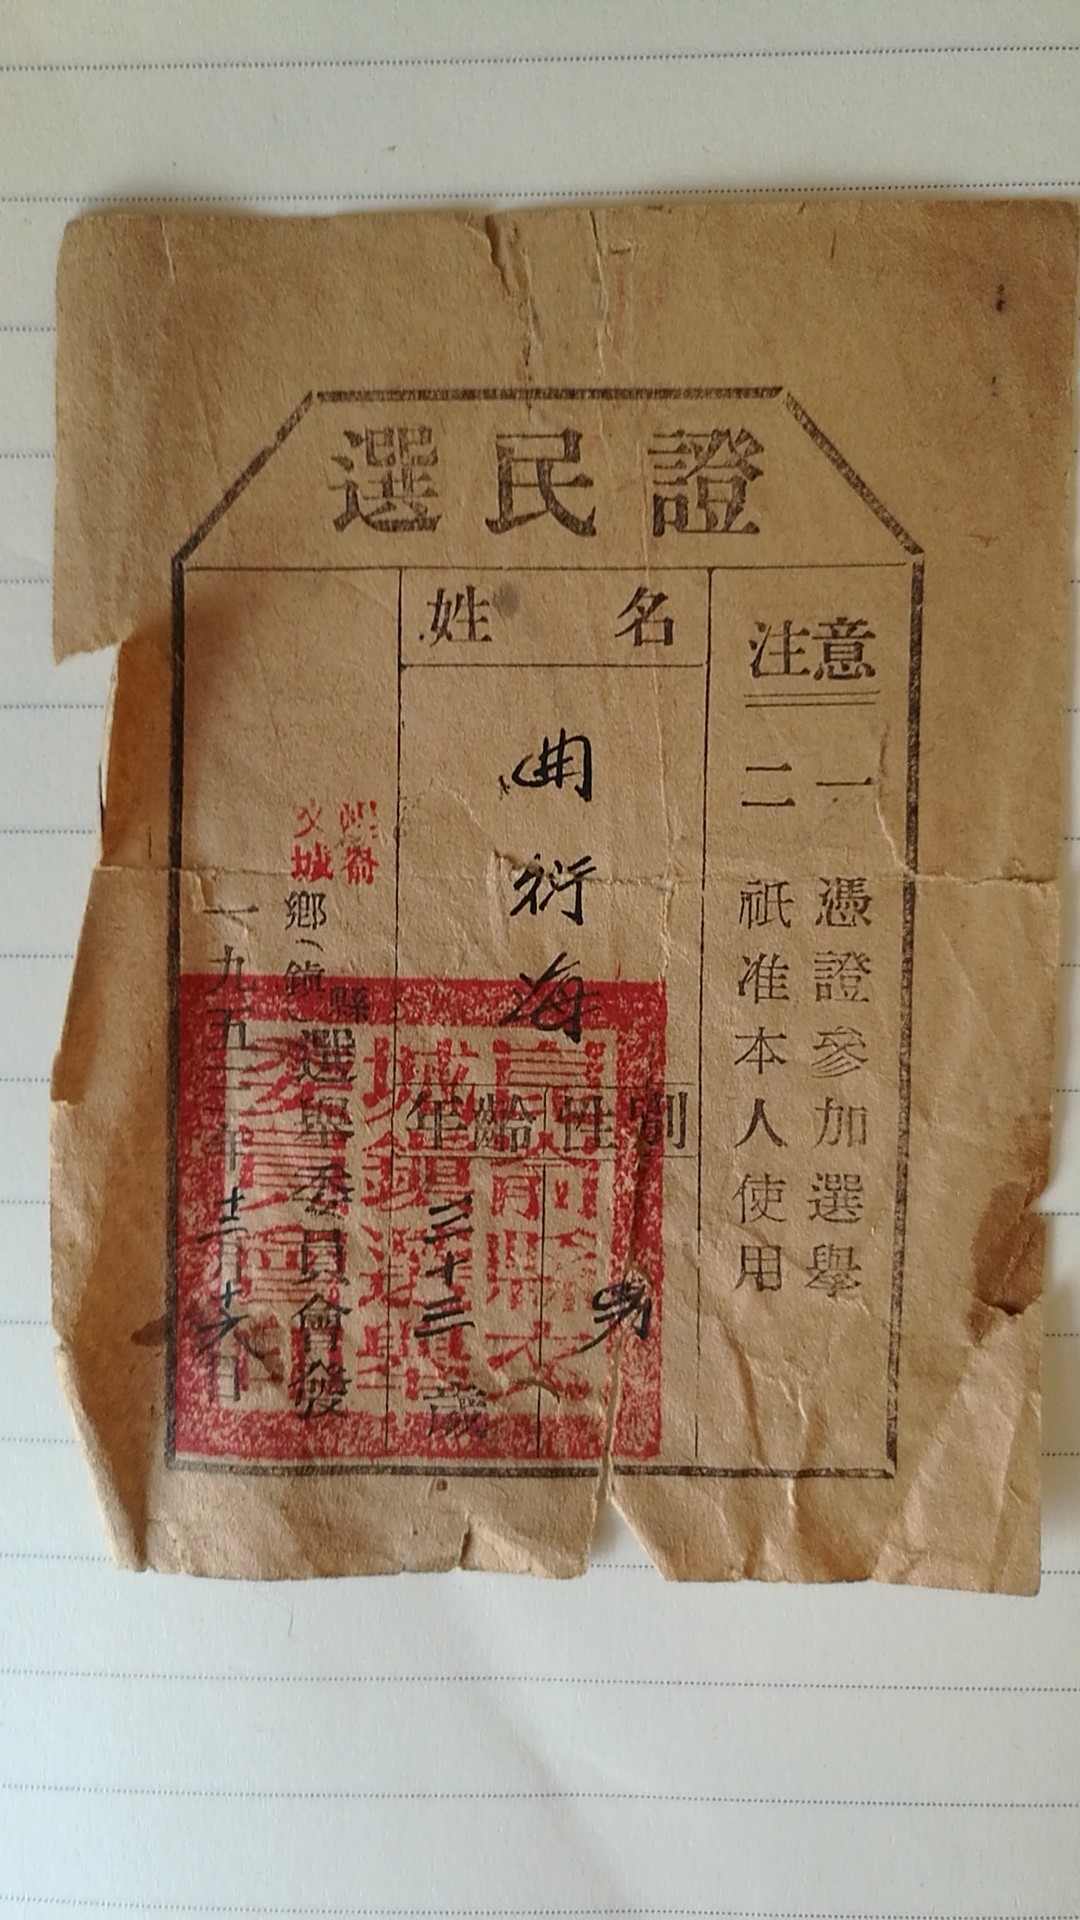 選民證
注意
一 憑證參加選舉
二 祇准本人使用
姓名
曲衍海
性別
男
年齡
三十三歲
縣
文城鄉(鎮)選舉委員會發
一九五三年十二月十六日